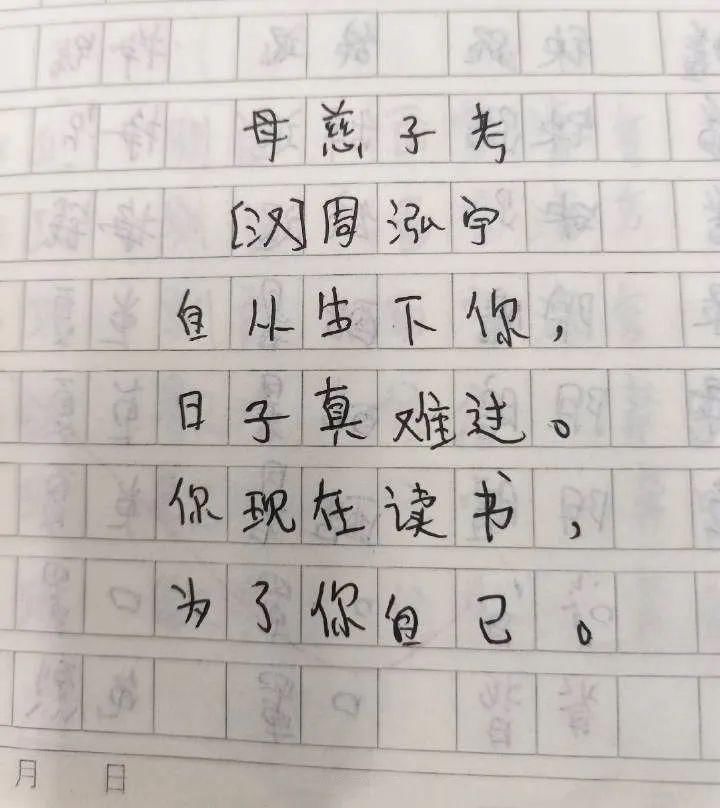 母慈子考
[汉]周泓宇
自从生下你，
日子真难过。
你现在读书，
为了你自己。
月 日